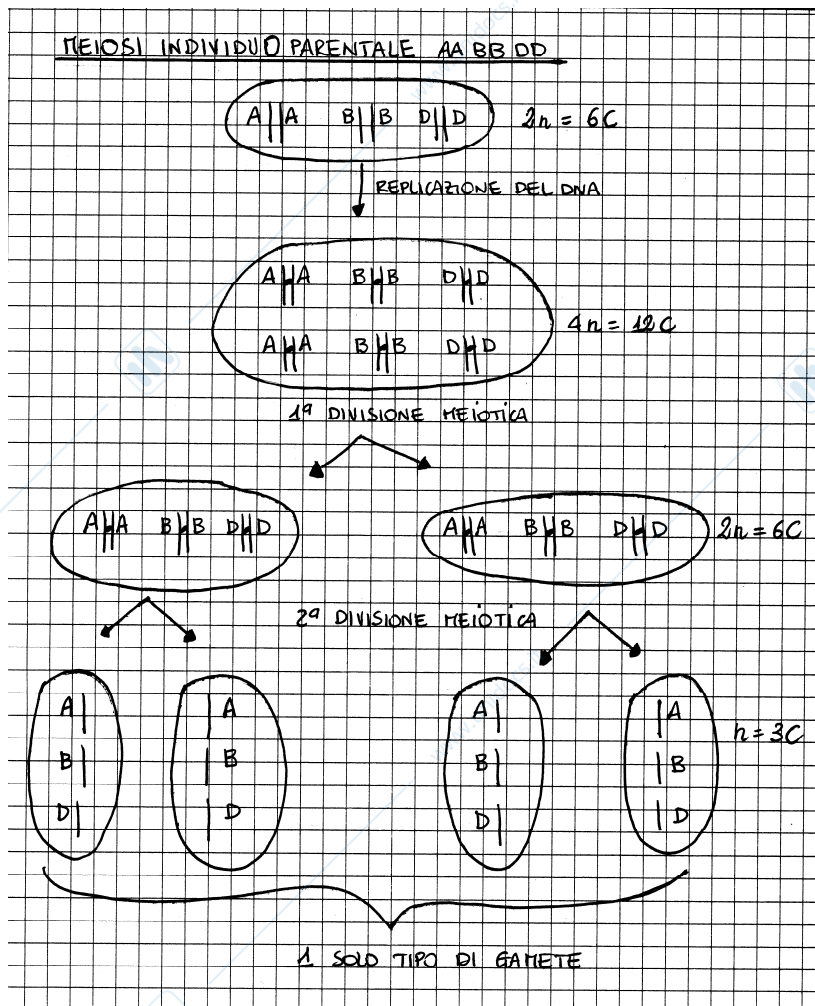 MEIOSI INDIVIDUO PARENTALE AA BB DD
A A B B D D 2n = 6C
REPLICAZIONE DEL DNA
A A B B D D
4n = 12C
A A B B D D
1ª DIVISIONE MEIOTICA
A A B B D D A A B B D D 2n = 6C
2ª DIVISIONE MEIOTICA
A A A A
n = 3C
B B B B
D D D D
1 SOLO TIPO DI GAMETE